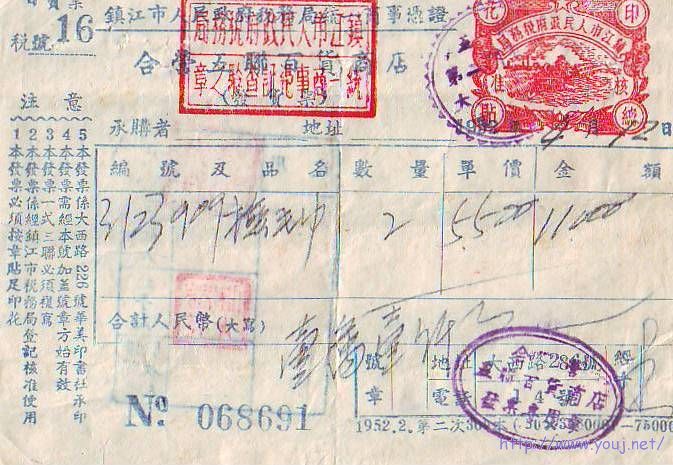 稅號 16
鎮江市人民政府稅務局統一商事憑證
合營五聯百貨商店
(發貨票)
鎮江市人民政府稅務局
統一商事憑証查驗之章
印花
核准
總貼
承購者 地址 1952年4月12日
編號及品名 數量 單價 金額
3123 909 2 5500 11000
合計人民幣(大寫) 壹萬壹仟
注意
1本發票必須按章貼足印花
2本發票係經鎮江市稅務局登記核准使用
3本發票一式三聯必須複寫
4本發票需經本號加蓋號章方始有效
5本發票係大西路226號華美印書社承印
號章 地址 大西路286號
電話 14號
百貨商店
No 068691
1952.2.第二次300本
http://www.youj.net/